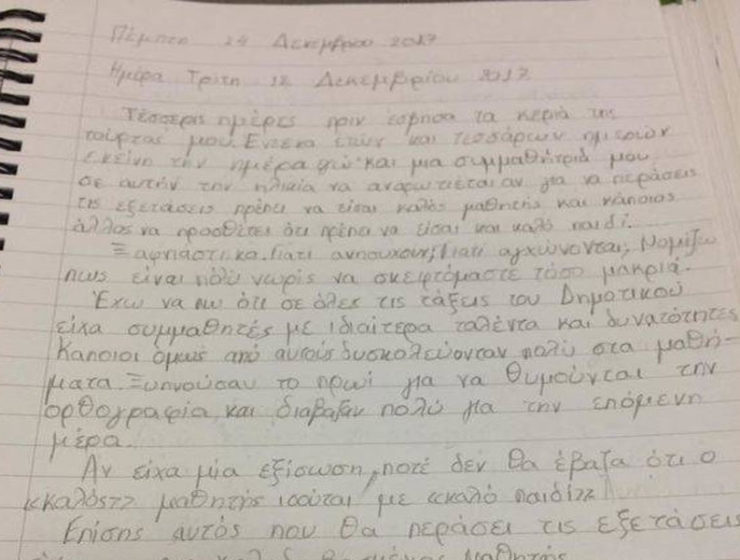 Πέμπτη 14 Δεκεμβρίου 2017
Ημέρα Τρίτη 12 Δεκεμβρίου 2017
Τέσσερις ημέρες πριν έσβησα τα κεριά της
τούρτας μου. Έντεκα ετών και τεσσάρων ημερών
εκείνη την ημέρα και μια συμμαθήτριά μου
σε αυτήν την ηλικία να αναρωτιέται αν για να περάσεις
τις εξετάσεις πρέπει να είσαι καλός μαθητής και κάποιος
άλλος να προσθέτει ότι πρέπει να είσαι και καλό παιδί.
Ξαφνιάστικα. Γιατί ανησυχούν; Γιατί αγχώνονται; Νομίζω
πως είναι πολύ νωρίς να σκεφτόμαστε τόσο μακριά.
Έχω να πω ότι σε όλες τις τάξεις του Δημοτικού
είχα συμμαθητές με ιδιαίτερα ταλέντα και δυνατότητες
Κάποιοι όμως από αυτούς δυσκολεύονταν πολύ στα μαθή-
ματα. Ξυπνούσαν το πρωί για να θυμούνται την
ορθογραφία και διάβαζαν πολύ για την επόμενη
μέρα.
Αν είχα μία εξίσωση, ποτέ δεν θα έβαζα ότι ο
«καλός» μαθητής ισούται με «καλό παιδί»
Επίσης αυτός που θα περάσει τις εξετάσεις
μαθητής